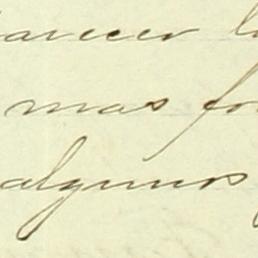 arecer l
mas fo
algunos